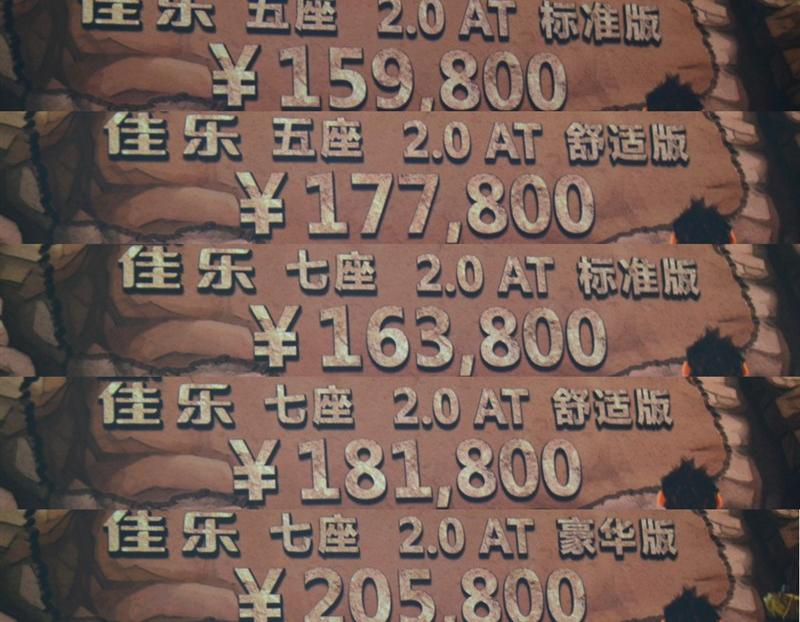 佳乐 五座 2.0 AT 标准版
¥159,800
佳乐 五座 2.0 AT 舒适版
¥177,800
佳乐 七座 2.0 AT 标准版
¥163,800
佳乐 七座 2.0 AT 舒适版
¥181,800
佳乐 七座 2.0 AT 豪华版
¥205,800